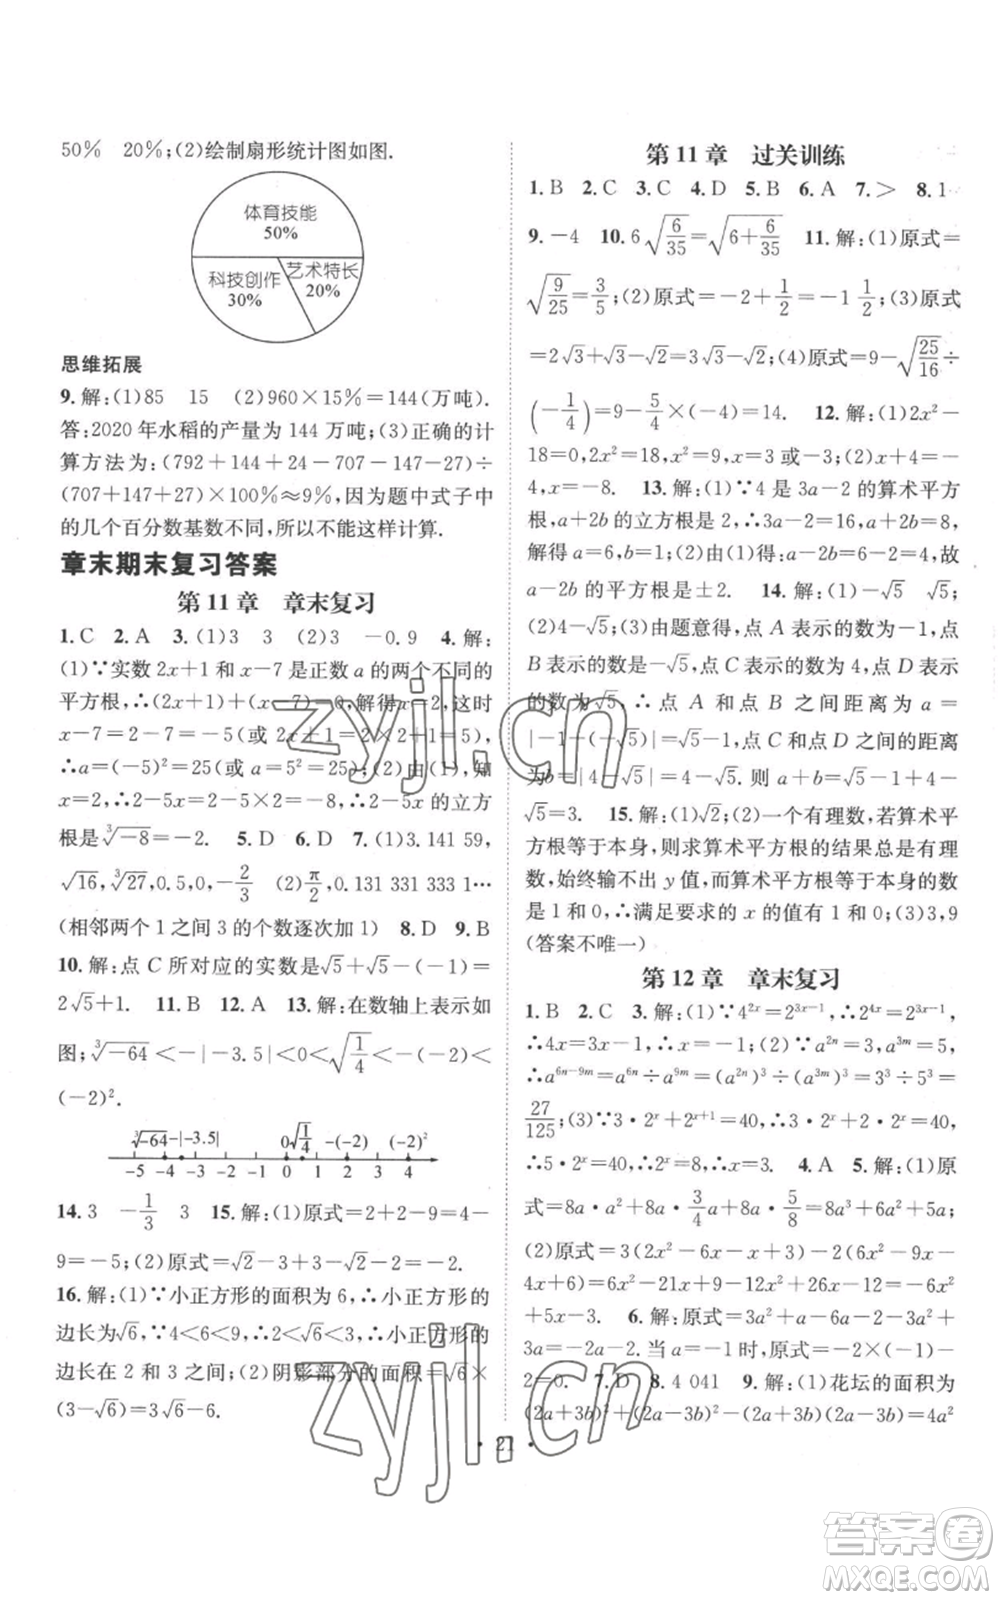 50% 20%;(2)绘制扇形统计图如图.
体育技能
50%
科技创作
30%
艺术特长
20%
思维拓展
9.解:(1)85 15 (2)960×15%=144(万吨).
答:2020年水稻的产量为144万吨;(3)正确的计
算方法为:(792+144+24-707-147-27)÷
(707+147+27)×100%≈9%,因为题中式子中
的几个百分数基数不同,所以不能这样计算.
章末期末复习答案
第11章 章末复习
1.C 2.A 3.(1)3 3 (2)3 -0.9 4.解:
(1)∵实数2x+1和x-7是正数a的两个不同的
平方根,∴(2x+1)+(x-7)=0,解得x=2,这时
x-7=2-7=-5(或2x+1=2×2+1=5),
∴a=(-5)²=25(或a=5²=25);(2)由(1),知
x=2,∴2-5x=2-5×2=-8,∴2-5x的立方
根是∛-8=-2. 5.D 6.D 7.(1)3.141 59,
√16,∛27,0.5,0,-2/3 (2)π/2,0.131 331 333 1…
(相邻两个1之间3的个数逐次加1) 8.D 9.B
10.解:点C所对应的实数是√5+√5-(-1)=
2√5+1. 11.B 12.A 13.解:在数轴上表示如
图;∛-64<-|-3.5|<0<√(1/4)<-(-2)<
(-2)².
∛-64 -|-3.5| 0 √(1/4) -(-2) (-2)²
-5 -4 -3 -2 -1 0 1 2 3 4
14.3 -1/3 3 15.解:(1)原式=2+2-9=4-
9=-5;(2)原式=√2-3+3-√2-2=-2.
16.解:(1)∵小正方形的面积为6,∴小正方形的
边长为√6,∵4<6<9,∴2<√6<3,∴小正方形的
边长在2和3之间;(2)阴影部分的面积=√6×
(3-√6)=3√6-6.
第11章 过关训练
1.B 2.C 3.C 4.D 5.B 6.A 7.> 8.1
9.-4 10.6√(6/35)=√(6+6/35) 11.解:(1)原式=
√(9/25)=3/5;(2)原式=-2+1/2=-1 1/2;(3)原式
=2√3+√3-√3=2√3;(4)原式=9-√(25/16)÷
(-1/4)=9-5/4×(-4)=14. 12.解:(1)2x²-
18=0,2x²=18,x²=9,x=3或-3;(2)x³=-8,
x=-8. 13.解:(1)∵4是3a-2的算术平方
根,∴3a-2=16,a+2=8,
解得a=6,b=1;(2)由(1)得:a-2b=4,故
a-2b的平方根是±2. 14.解:(1)-√5 √5
(2)4-√5;(3)由题意得,点A表示的数为-1,点
B表示的数为-√5,点C表示的数为4,点D表示
的数为√5,∴点A和点B之间距离为a=
|-1-(-√5)|=√5-1,点C和点D之间的距离
为b=|4-√5|=4-√5.则a+b=√5-1+4-
√5=3. 15.解:(1)√2;(2)一个有理数,若算术平
方根等于本身,则求算术平方根的结果总是有理
数,始终输不出y值,而算术平方根等于本身的数
是1和0,∴满足要求的x的值有1和0;(3)3,9
(答案不唯一)
第12章 章末复习
1.B 2.C 3.解:(1)∵4²ˣ=2³ˣ⁻¹,∴2⁴ˣ=2³ˣ⁻¹,
∴4x=3x-1,∴x=-1;(2)∵a²ⁿ=3,a³ᵐ=5,
∴a⁶ⁿ⁻⁹ᵐ=a⁶ⁿ÷a⁹ᵐ=(a²ⁿ)³÷(a³ᵐ)³=3³÷5³=
27/125;(3)∵3·2ˣ+2ˣ⁺¹=40,∴3·2ˣ+2·2ˣ=40,
∴5·2ˣ=40,∴2ˣ=8,∴x=3. 4.A 5.解:(1)原
式=8a·a²+8a·3/4a+8a·5/8=8a³+6a²+5a;
(2)原式=3(2x²-6x-x+3)-2(6x²-9x-
4x+6)=6x²-21x+9-12x²+26x-12=-6x²
+5x-3. 6.解:原式=3a²+a-6a-2-3a²+
2a=-3a-2.当a=-2/3时,原式=-2×(-1)-
2=0. 7.D 8.4 041 9.解:(1)花坛的面积为
(2a+3b)²+(2a-3b)²-(2a+3b)(2a-3b)=4a²
· 21 ·
zyjl.cn
zyjl.cn
答案圈
MXQE.COM